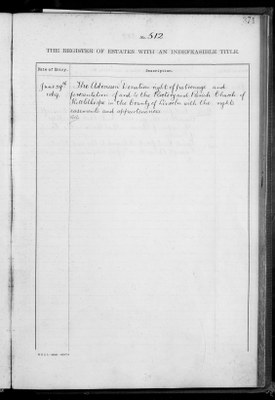 No. 512
THE REGISTER OF ESTATES WITH AN INDEFEASIBLE TITLE.
Date of Entry.
Description.
June 29th
The Advowson Donation right of patronage and
presentation of and to the Rectory and Parish Church of
in the County of Lincoln with the rights
easements and appurtenances